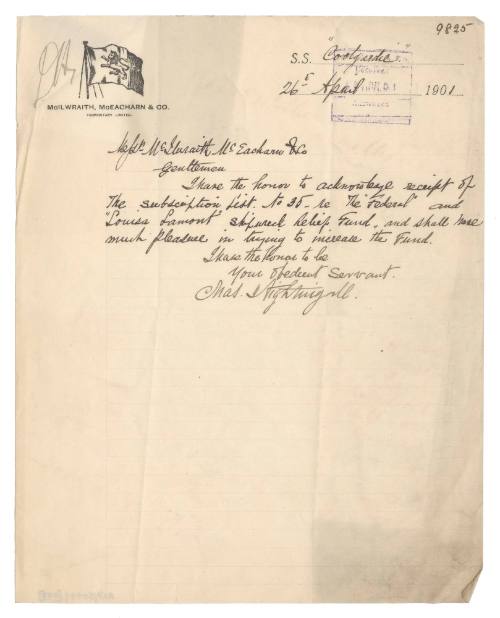 9825
S.S. "Coolgardie"
26th April 1901
McILWRAITH, McEACHARN & CO.
PROPRIETARY LIMITED.
Messrs McIlwraith McEacharn & Co
Gentlemen
I have the honor to acknowledge receipt of
the subscription list No 35 re "The Federal" and
"Louisa Lamont" shipwreck Relief Fund, and shall have
much pleasure in trying to increase the Fund.
I have the honor to be
Your Obedient Servant.
Chas. Nightingall.